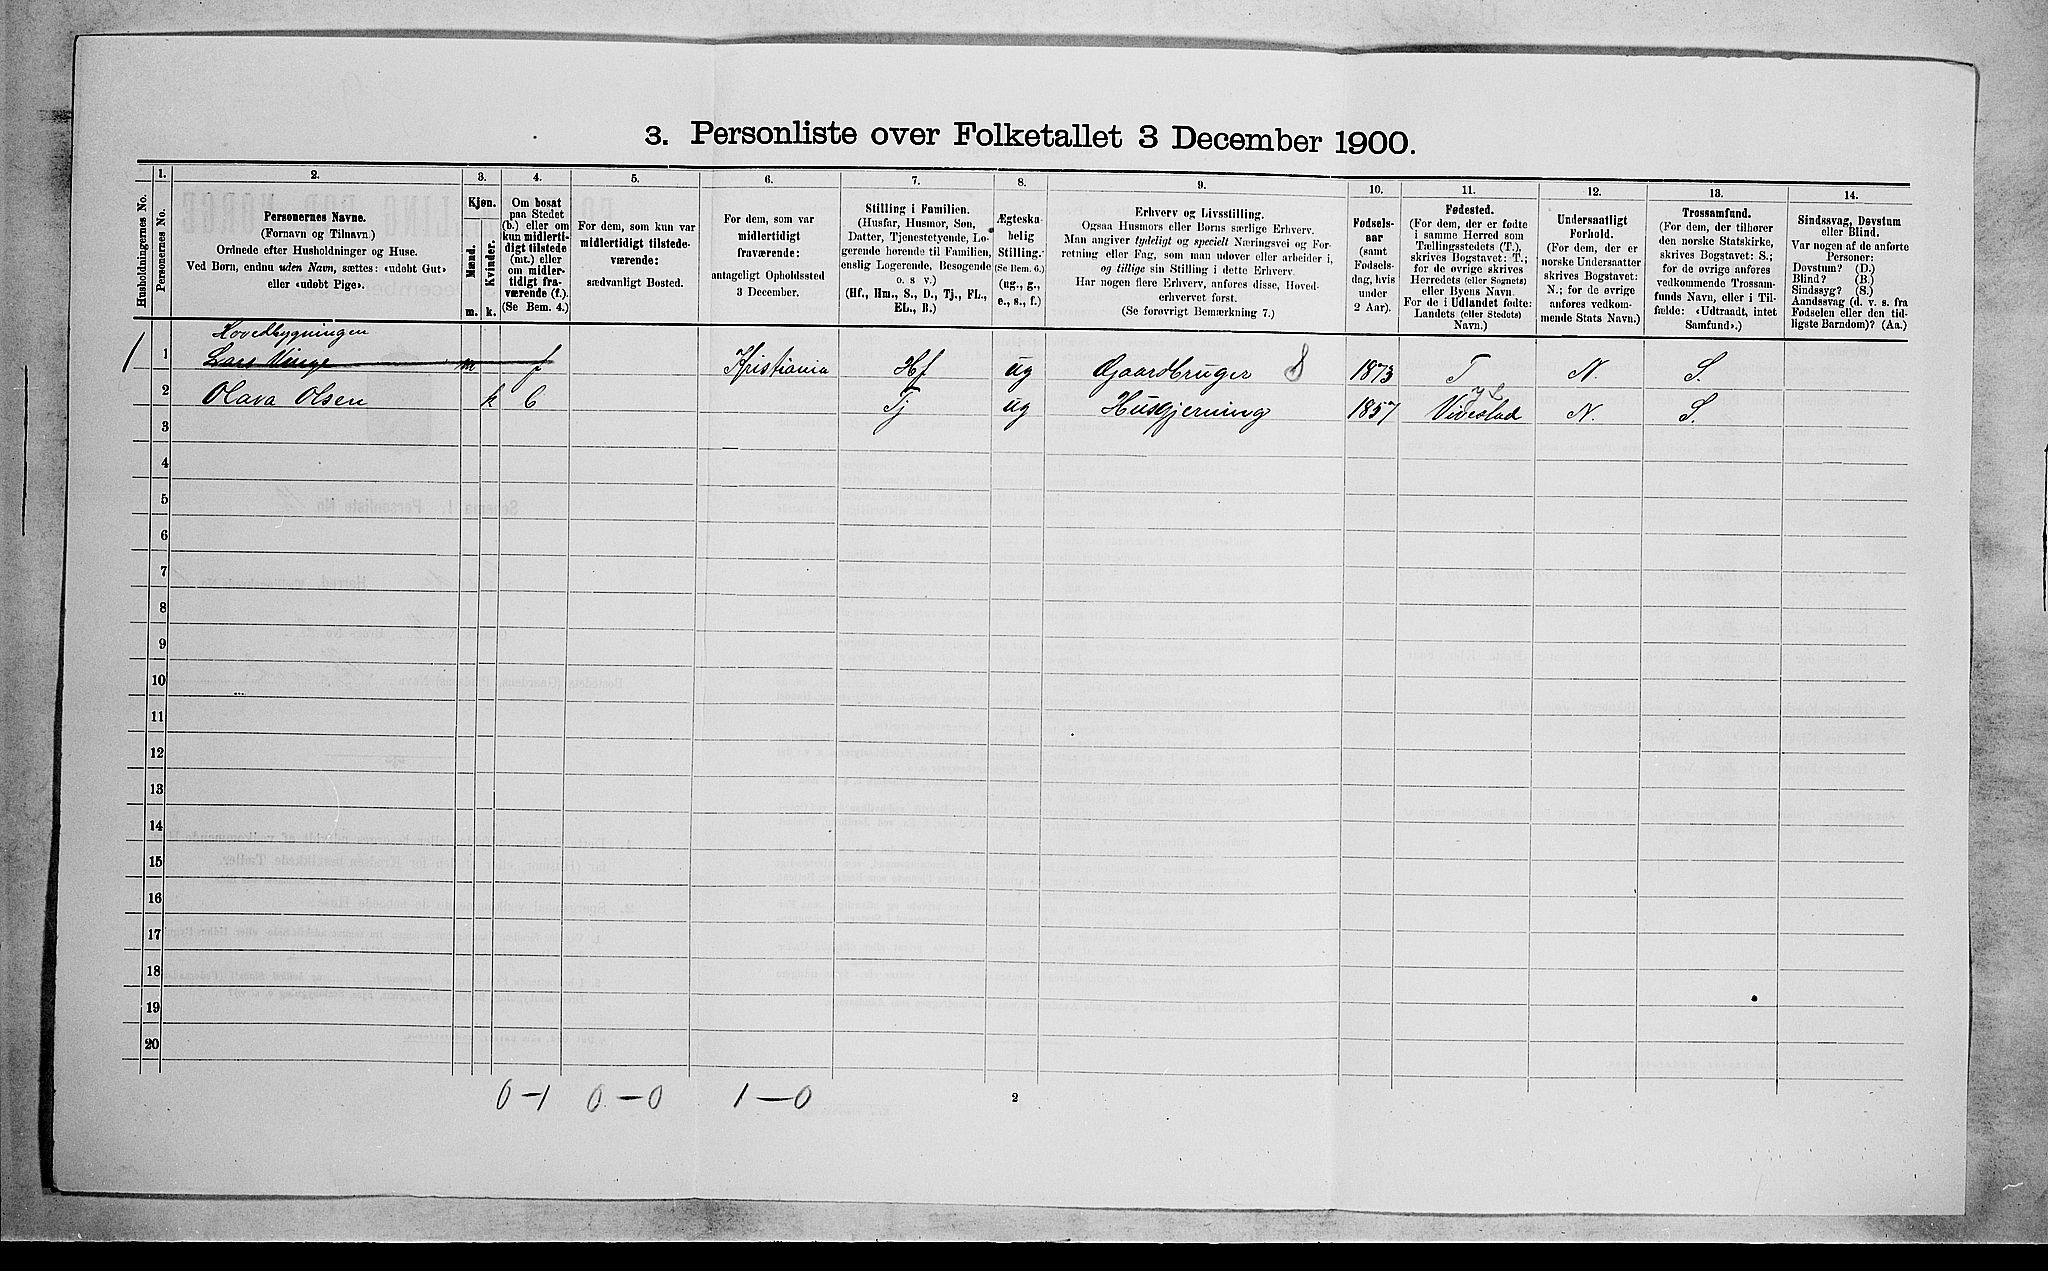 3. Personliste over Folketallet 3 December 1900.
Husholdningernes No.
1.
Personernes No.
2.
Personernes Navne.
(Fornavn og Tilnavn.)
Ordnede efter Husholdninger og Huse.
Ved Børn, endnu uden Navn, sættes: «udøbt Gut»
eller «udøbt Pige».
3.
Kjøn.
Mænd.
Kvinder.
m.
k.
4.
Om bosat
paa Stedet
(b.) eller om
kun midlerti-
digt tilstede
(mt.) eller
om midler-
tidigt fra-
værende (f.).
(Se Bem. 4.)
5.
For dem, som kun var
midlertidigt tilstede-
værende:
sædvanligt Bosted.
6.
For dem, som var
midlertidigt
fraværende:
antageligt Opholdssted
3 December.
7.
Stilling i Familien.
(Husfar, Husmor, Søn,
Datter, Tjenestetyende, Lo-
gerende hørende til Familien,
enslig Logerende, Besøgende
o. s v.)
(Hf., Hm., S., D., Tj., FL.,
EL., B.)
8.
Ægteska-
belig
Stilling.
(Se Bem. 6.)
(ug., g.,
e., s., f.)
9.
Erhverv og Livsstilling.
Ogsaa Husmors eller Børns særlige Erhverv.
Man angiver tydeligt og specielt Næringsvei og For-
retning eller Fag, som man udøver eller arbeider i,
og tillige sin Stilling i dette Erhverv.
Har nogen flere Erhverv, anføres disse, Hoved-
erhvervet først.
(Se forøvrigt Bemærkning 7.)
10.
Fødsels-
aar
(samt
Fødsels-
dag, hvis
under
2 Aar).
11.
Fødested.
(For dem, der er fødte
i samme Herred som
Tællingsstedets (T.),
skrives Bogstavet: T.;
for de øvrige skrives
Herredets (eller Sognets)
eller Byens Navn.
For de i Udlandet fødte:
Landets (eller Stedets)
Navn.)
12.
Undersaatligt
Forhold.
(For dem, der er
norske Undersaatter
skrives Bogstavet:
N.; for de øvrige
anføres vedkom-
mende Stats Navn.)
13.
Trossamfund.
(For dem, der tilhører
den norske Statskirke,
skrives Bogstavet: S.;
for de øvrige anføres
vedkommende Trossam-
funds Navn, eller i Til-
fælde: «Udtraadt, intet
Samfund».)
14.
Sindssvag, Døvstum
eller Blind.
Var nogen af de anførte
Personer:
Døvstum? (D.)
Blind? (B.)
Sindssyg? (S.)
Aandssvag (d. v. s. fra
Fødselen eller den tid-
ligste Barndom)? (Aa.)
Hovedbygningen
1 1 Lars Vinge m f Kristiania Hf ug Gaardbruger 8 1873 T N. S.
2 Olava Olsen k b Tj ug Husgjerning 1857 Vivestad N. S.
3
4
5
6
7
8
9
10
11
12
13
14
15
16
17
18
19
20
0-1 0-0 1-0
2